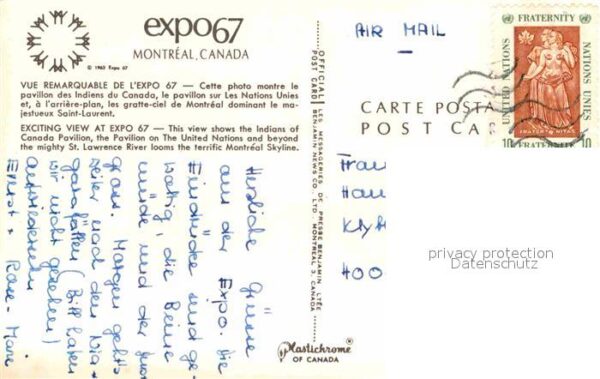 expo67
MONTRÉAL, CANADA
© 1963 Expo 67
VUE REMARQUABLE DE L'EXPO 67 — Cette photo montre le
pavillon des Indiens du Canada, le pavillon sur Les Nations Unies
et, à l'arrière-plan, les gratte-ciel de Montréal dominant le ma-
jestueux Saint-Laurent.
EXCITING VIEW AT EXPO 67 — This view shows the Indians of
Canada Pavilion, the Pavilion on The United Nations and beyond
the mighty St. Lawrence River looms the terrific Montréal Skyline.
Herzliche Grüsse
aus der Expo. Die
Eindrücke sind ge-
waltig, die Beine
müde und der
gross. Morgen geht's
weiter nach den Nia-
garafällen (Bill haben
wir nicht gesehen)
Auf Wiedersehen
Ernst + Rose-Marie
OFFICIAL POST CARD
LES MESSAGERIES DE PRESSE BENJAMIN LTÉE
BENJAMIN NEWS CO. LTD. MONTRÉAL 3, CANADA
Plastichrome®
OF CANADA
AIR MAIL
CARTE POSTA
POST CA
Frau
Han
400
FRATERNITY
UNITED NATIONS
NATIONS UNIES
FRATERNITAS
10 FRATERNITÉ 10
privacy protection
Datenschutz